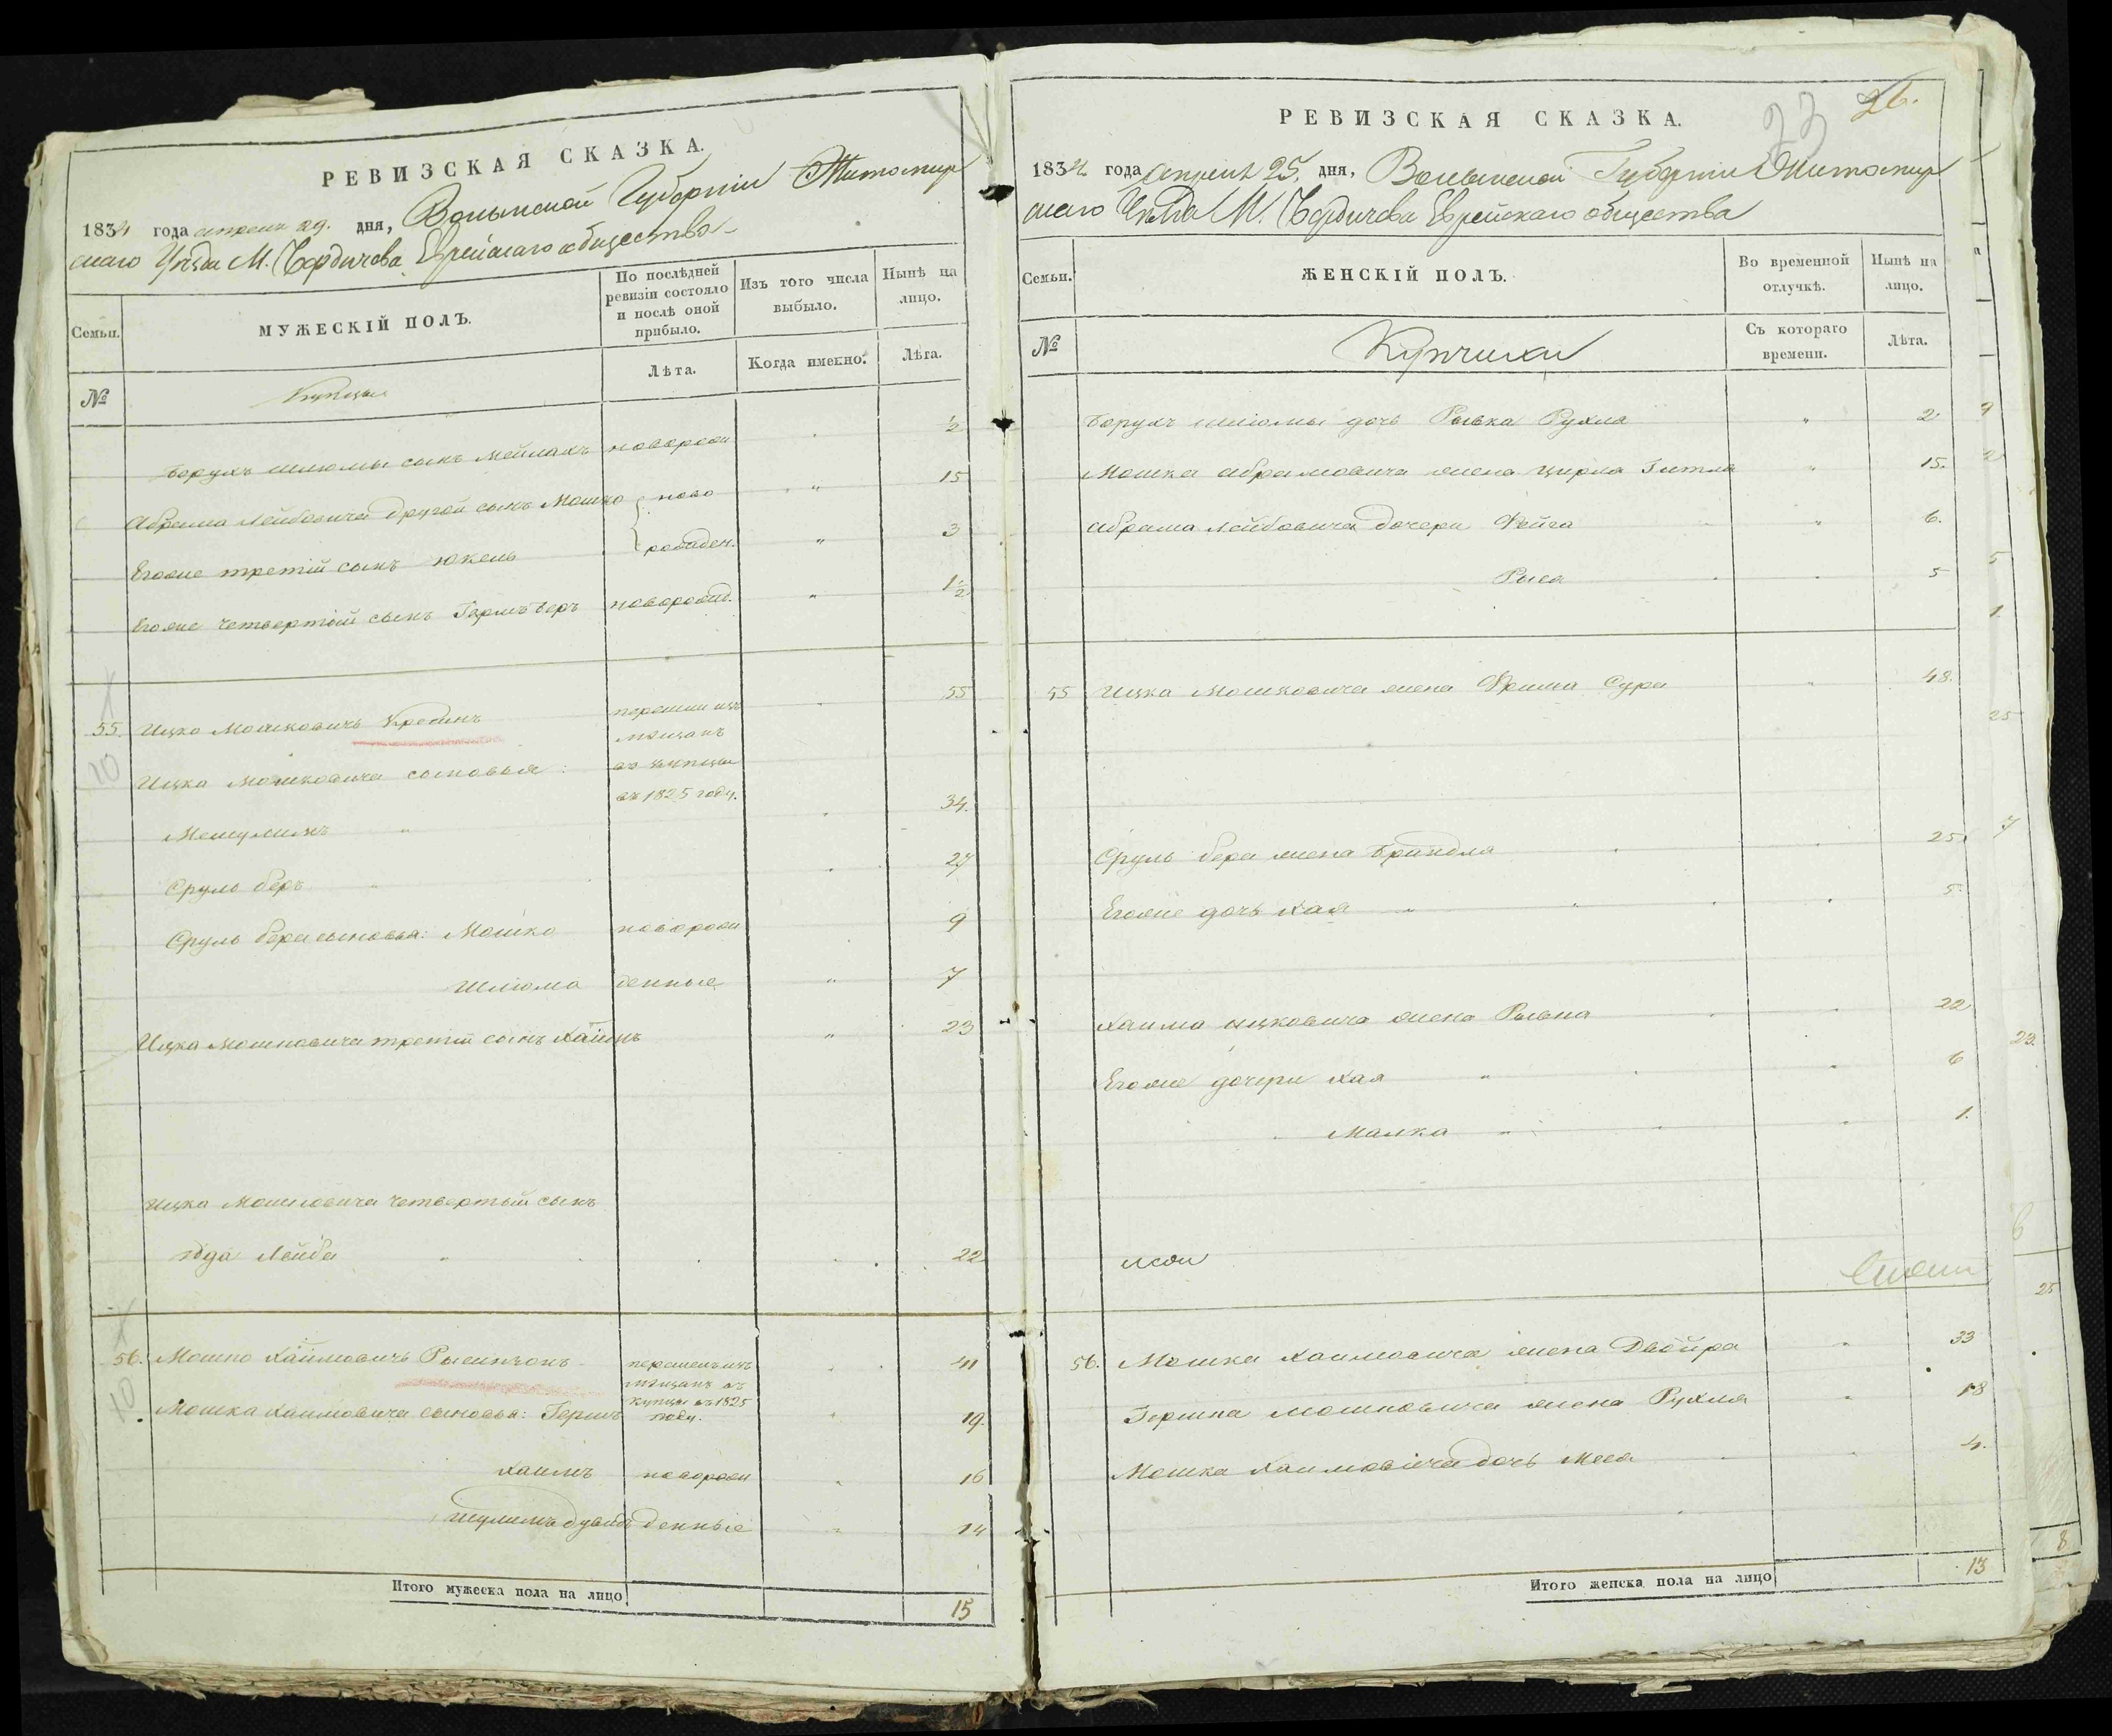 РЕВИЗСКАЯ СКАЗКА.
1834 года апреля 29. дня, Волынской Губернии Житомир
скаго Уѣзда М. Бердичева Еврейскаго общества
Семьи.
МУЖЕСКІЙ ПОЛЪ.
По послѣдней ревизіи состояло и послѣ оной прибыло.
Изъ того числа выбыло.
Нынѣ на лицо.
№
Купцы
Лѣта.
Когда именно.
Лѣта.
Борухъ шлюмы сынъ Мейлахъ новорож " ½
Абрама Лейбовича другой сынъ Мошко ново " 15
Егоже третій сынъ Юкель рожден. " 3
Егоже четвертый сынъ Гершъ Беръ новорожд. " 1½
55. Ицко Мошковичъ перешли изъ 55
мѣщанъ
Ицка Мошковича сыновья: въ купцы
въ 1825 году.
Мешулимъ " 34.
Сруль Беръ " 27
Сруль Бера сыновья: Мошко новорож 9
Шлюма денные " 7
Ицка Мошковича третій сынъ Хаимъ " 23
10
Ицка Мошковича четвертый сынъ
Юда Лейба " 22
56. Мошко Хаимовичъ перешелъ изъ 41
мѣщанъ въ
Мошка Хаимовича сыновья: Гершъ купцы въ 1825 году. " 19.
10
Хаимъ новорож " 16
Шулимъ Дувидъ денные " 14
Итого мужеска пола на лицо 15
РЕВИЗСКАЯ СКАЗКА.
26.
1834 года апреля 25. дня, Волынской Губерніи Житомир
скаго Уѣзда М. Бердичева Еврейскаго общества
Семьи.
ЖЕНСКІЙ ПОЛЪ.
Во временной отлучкѣ.
Нынѣ на лицо.
№
Купчихи
Съ котораго времени.
Лѣта.
Борухъ шлюмы дочь Рывка Рухля " 2
Мошка Абрамовича жена Цирля Гитля " 15.
Абрама Лейбовича дочери Фейга " 6.
Рыса " 5
55 Ицка Мошковича жена Фрима Сура " 48.
Сруль Бера жена Брандля " 25
Егоже дочь Хая " 5
Хаима Ицковича жена Рывка " 22
Егоже дочери Хая " 6
Малка " 1.
56. Мошка Хаимовича жена Двойра " 33
Гершка Мошковича жена Рухля " 18
Мошка Хаимовича дочь Меса " 4.
Итого женска пола на лицо 13